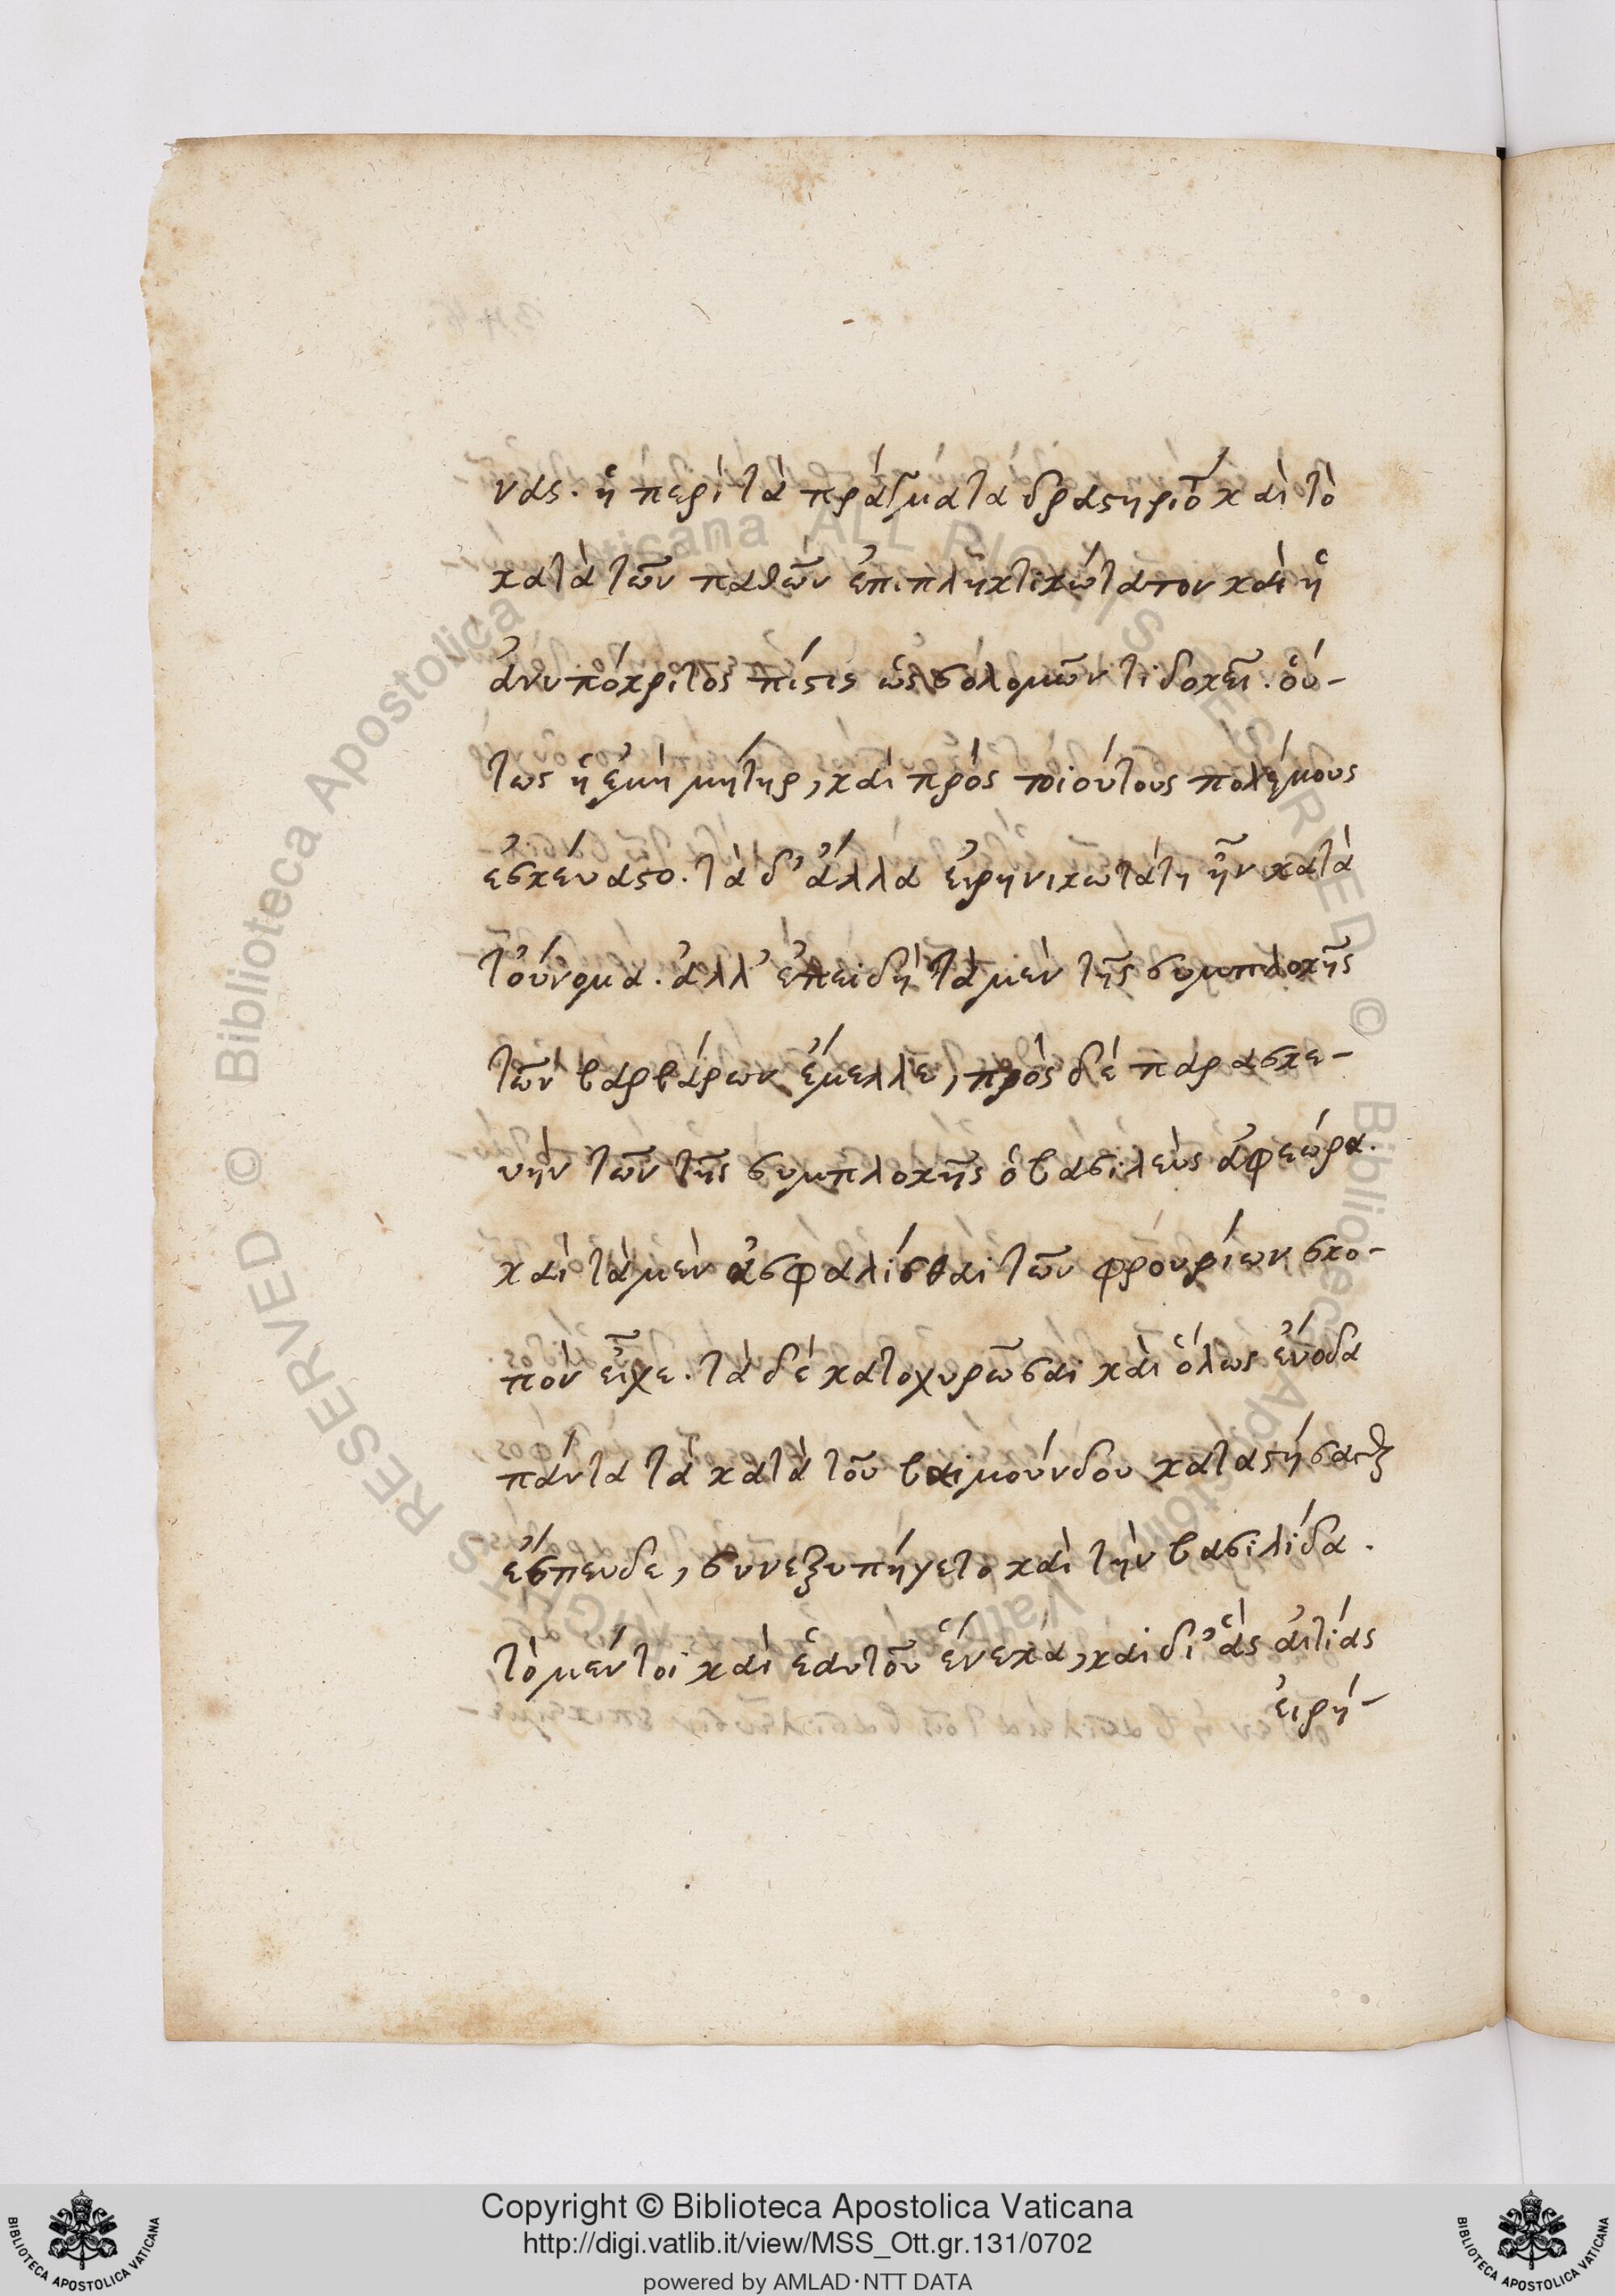 νας. ἡ περὶ τὰ πράγματα δραστήριον καὶ τὸ
κατὰ τῶν παθῶν ἐπιπληκτικώτατον καὶ ἡ
ἀνυπόκριτος πίστις ὡς σολομῶντι δοκεῖ. οὕ-
τως ἡ ἐμὴ μήτηρ, καὶ πρὸς τοιούτους πολέμους
ἐσκεύαστο. τὰ δ' ἄλλα εἰρηνικωτάτη ἦν κατὰ
τοὔνομα. ἀλλ' ἐπειδὴ τὰ μὲν τῆς συμπλοκῆς
τῶν βαρβάρων ἔμελλε, πρὸς δὲ παρασκε-
υὴν τῶν τῆς συμπλοκῆς ὁ βασιλεὺς ἀφεώρα.
καὶ τὰ μὲν ἀσφαλίσθαι τῶν φρουρίων σκο-
πὸν εἶχε. τὰ δὲ κατοχυρῶσαι καὶ ὅλως εὔοδα
πάντα τὰ κατὰ τοῦ βαϊμούνδου καταστήσασθαι
ἔσπευδε, συνεξυπήγετο καὶ τὴν βασιλίδα.
τὸ μέν τοι καὶ ἑαυτοῦ ἕνεκα, καὶ δι' ἃς αἰτίας
εἰρή-
Copyright © Biblioteca Apostolica Vaticana
http://digi.vatlib.it/view/MSS_Ott.gr.131/0702
powered by AMLAD·NTT DATA